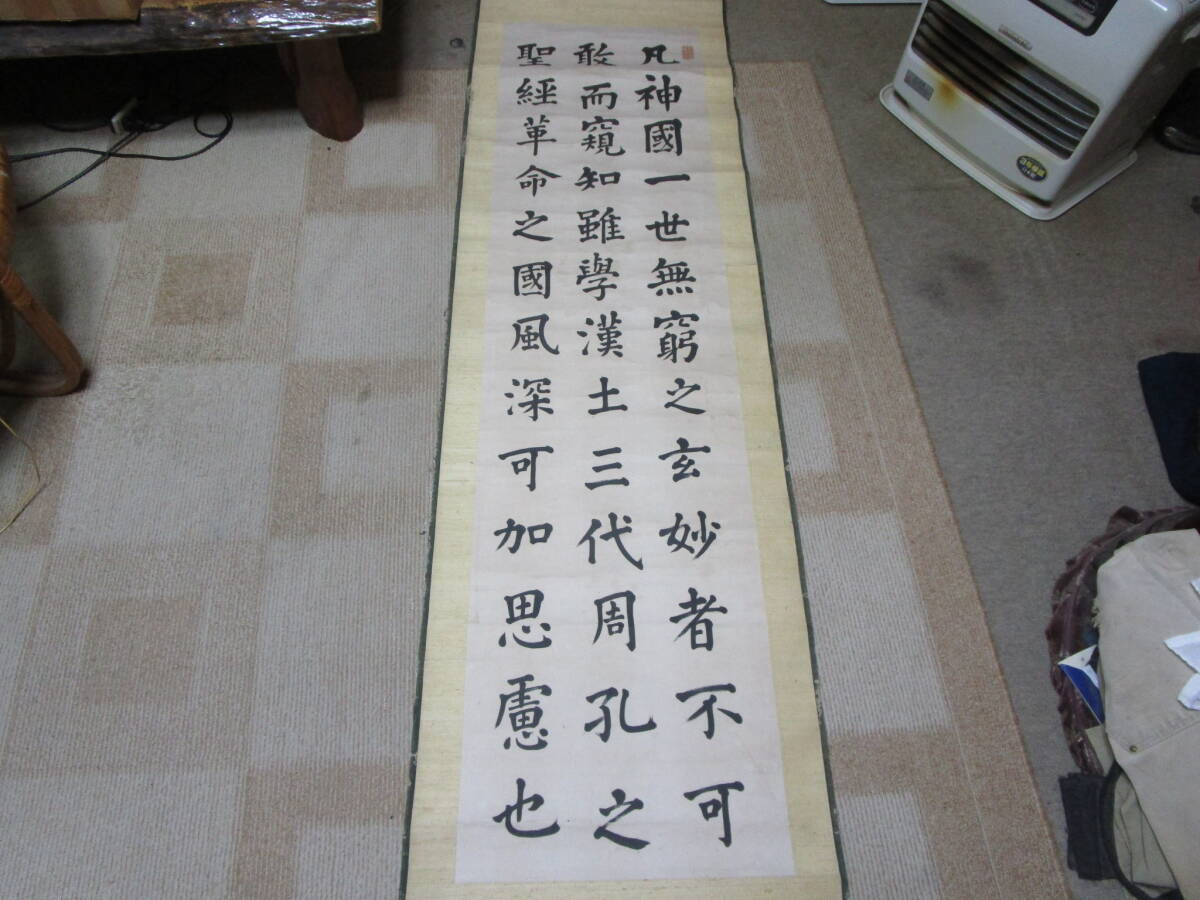 凡神國一世無窮之玄妙者不可
敢而窺知雖學漢土三代周孔之
聖經革命之國風深可加思慮也